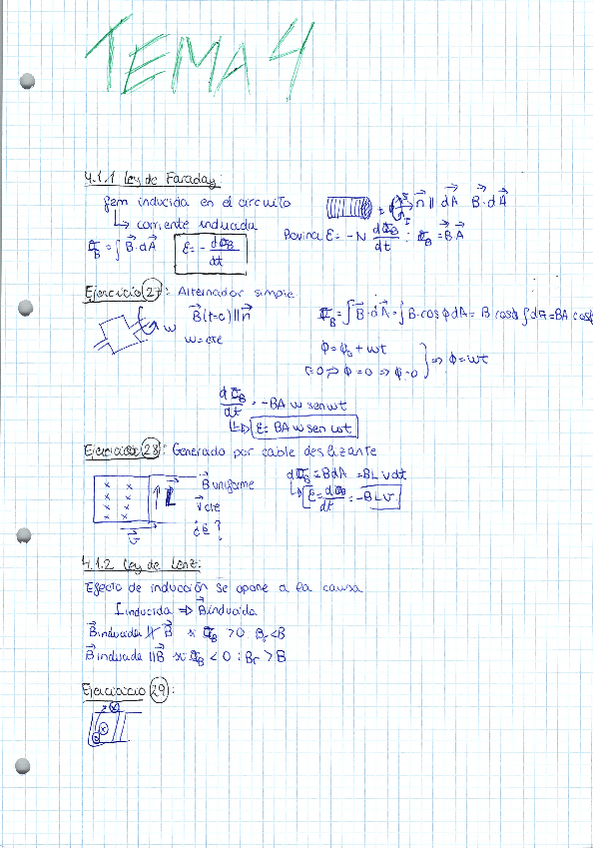 TEMA 4
4.1.1 Ley de Faraday:
fem inducida en el circuito
↳ corriente inducida
n⃗ || dA⃗ B⃗·dA⃗
Φ_B = ∫B⃗·dA⃗ ε = - dΦ_B/dt
Bovina ε = -N dΦ_B/dt : Φ_B = B⃗A⃗
Ejercicio 27: Alternador simple
B⃗(t=0) || n⃗
w
w = cte
Φ_B = ∫B⃗·dA⃗ = ∫B·cosϕdA = B cosϕ∫dA = BA cosϕ
ϕ = ϕ₀ + wt
t=0 ⇒ ϕ = 0 ⇒ ϕ₀ = 0
⇒ ϕ = wt
dΦ_B/dt = -BA w sen wt
↳ ε = BA w sen wt
Ejercicio 28: Generado por cable deslizante
B⃗ uniforme
v⃗ cte
¿ε?
x x
x x
x x
x x
L⃗
v⃗
dΦ_B = BdA = BLvdt
↳ ε = dΦ_B/dt = -BLv
4.1.2 Ley de Lenz:
Efecto de inducción se opone a la causa
I inducida ⇒ B⃗ inducida
B⃗ inducida ∦ B⃗ si Φ_B > 0 Br < B
B⃗ inducida || B⃗ si Φ_B < 0 : Br > B
Ejercicio 29: